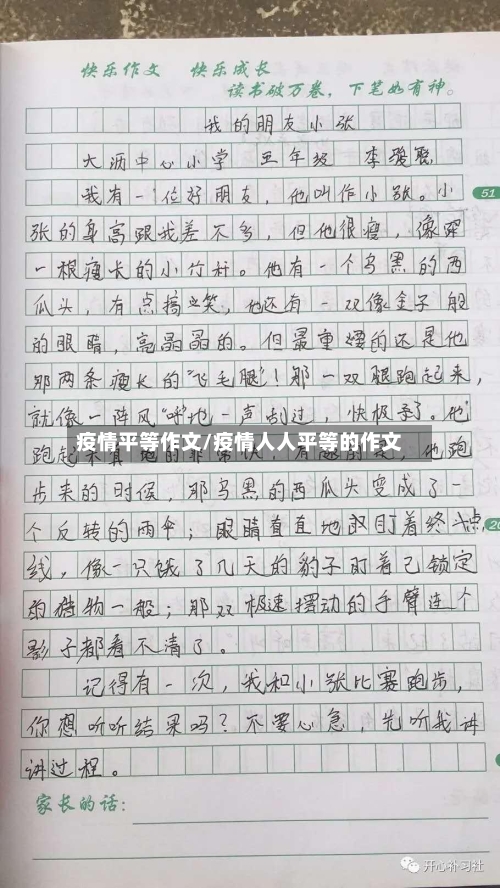 快乐作文 快乐成长
读书破万卷，下笔如有神。
我的朋友小张
大沥中心小学 五年级 李骏
我有一位好朋友，他叫作小张。小
51
张的身高跟我差不多，但他很瘦，像
一根瘦长的小竹杆。他有一个乌黑的西
瓜头，有点搞笑，他还有一双像金子般
的眼睛，高晶晶的。但最重要的还是他
那两条瘦长的“飞毛腿”！那一双腿跑起来，
就像一阵风“呼”地一声刮过，快极了。他
疫情平等作文/疫情人人平等的作文
跑起，他跑
步来的时候，那乌黑的西瓜头变成了一
个反转的雨伞；眼睛直直地盯着终点
20
线，像一只饿了几天的豹子盯着已锁定
的猎物一般；那双极速摆动的手臂连个
影子都看不清了。
记得有一次，我和小张比赛跑步，
你想听听结果吗？不要心急，先听我讲
讲过程。
家长的话：
开心补习社